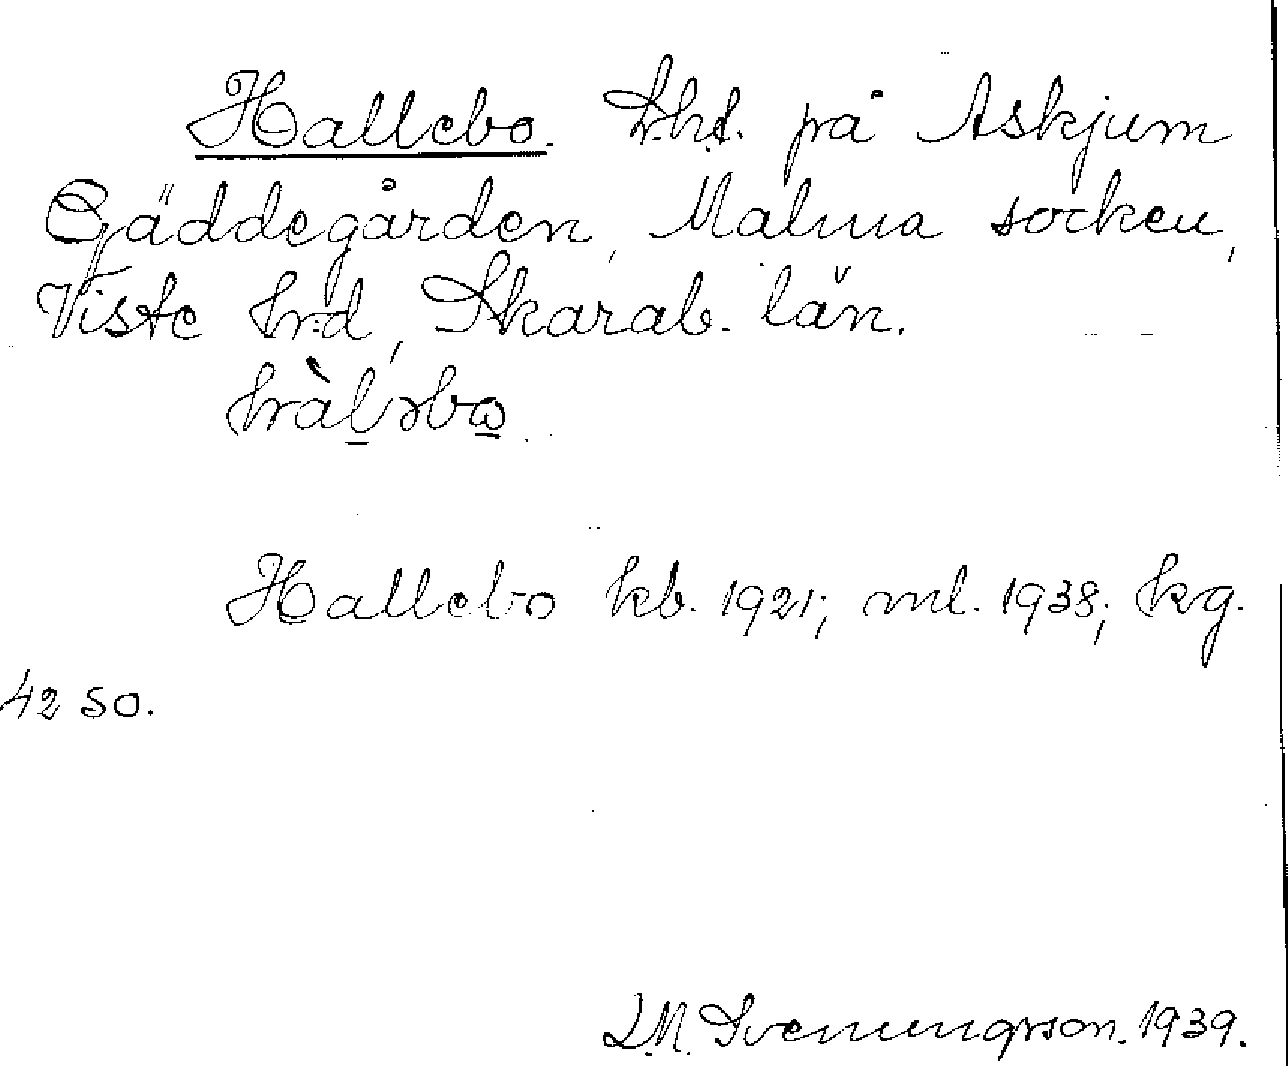 Hallebo. Lhl. på Askjum
Gäddegården, Malma socken,
Viste hrd, Skarab. län.
hràl̠ɔbo̠
Hallebo kb. 1921; ml. 1938; kg.
42 SO.
L.M. Svenungsson. 1939.